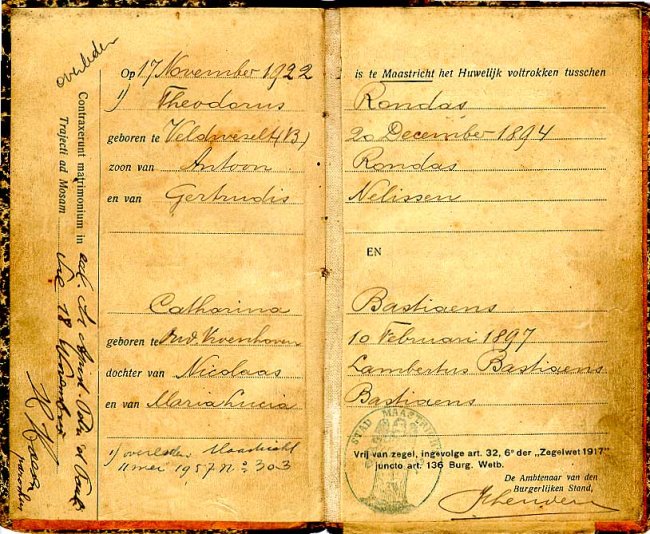 Op 17 November 1922 is te Maastricht het Huwelijk voltrokken tusschen
1) Theodorus Rondas
geboren te Veldwezelt (B) 20 December 1894
zoon van Antoon Rondas
en van Gertrudis Nelissen
EN
Catharina Bastiaens
geboren te 10 Februari 1897
dochter van Nicolaas Lambertus Bastiaens
en van Maria Lucia Bastiaens
1) overleden Maastricht
11 mei 1957 No 303
STAD MAASTRICHT
Vrij van zegel, ingevolge art. 32, 6e der „Zegelwet 1917"
juncto art. 136 Burg. Wetb.
De Ambtenaar van den
Burgerlijken Stand,
overleden
Contraxerunt matrimonium in
Trajecti ad Mosam die 18